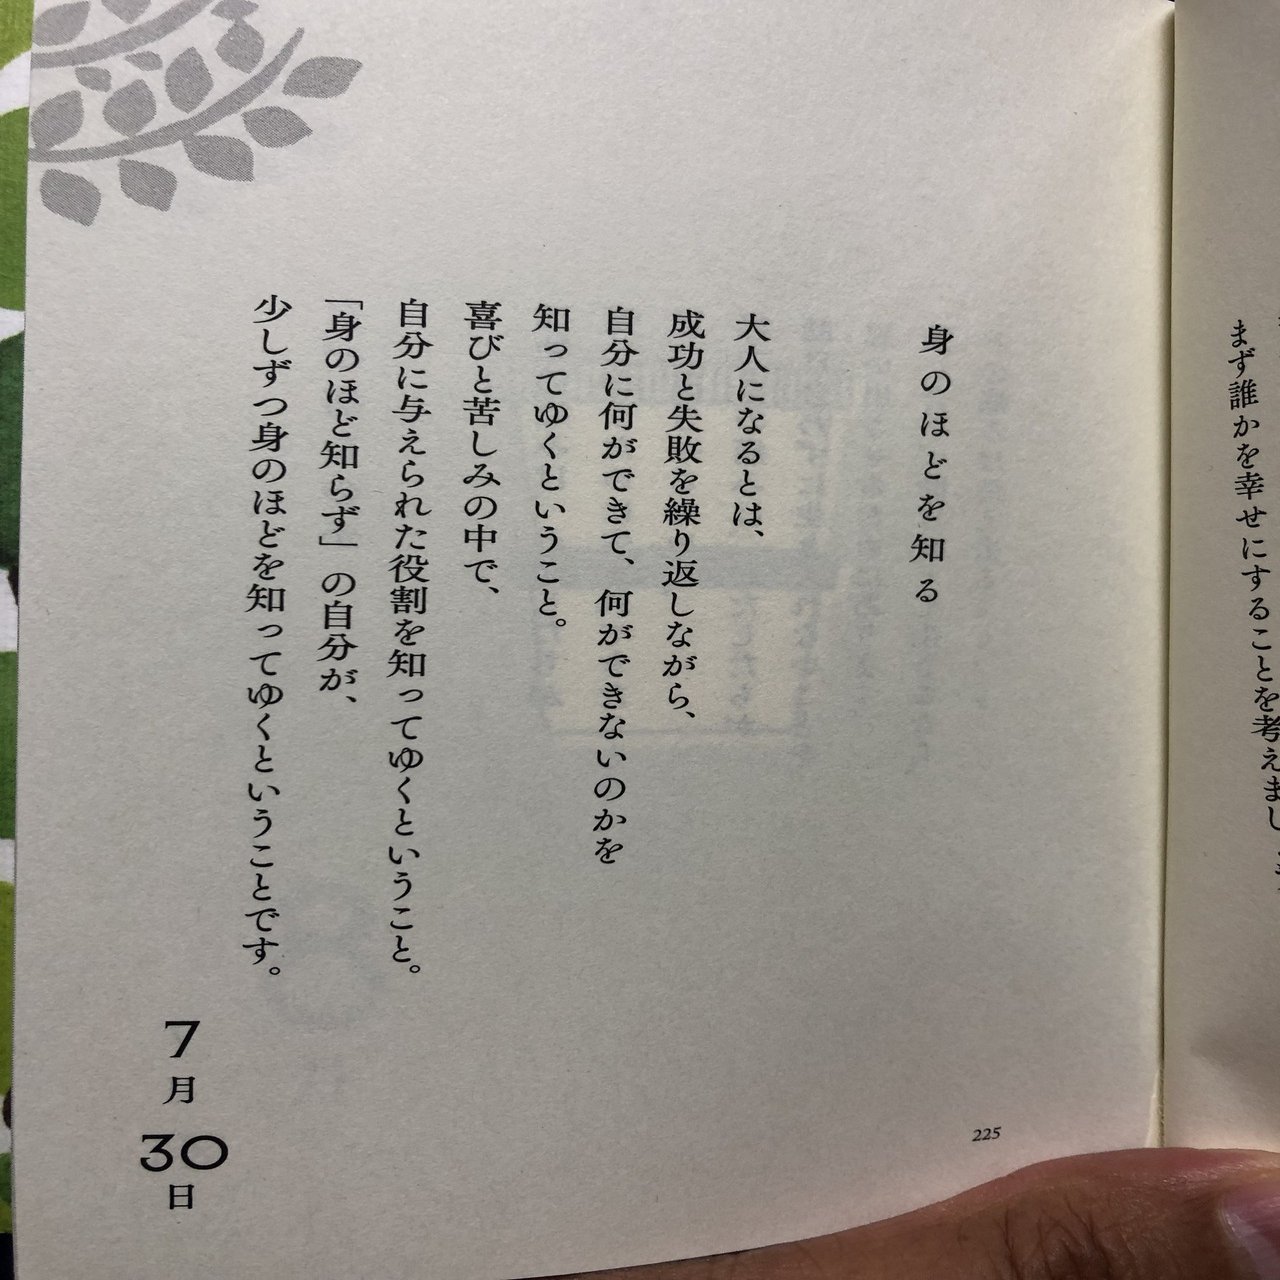 まず誰かを幸せにすることを考えまし
身のほどを知る
大人になるとは、
成功と失敗を繰り返しながら、
自分に何ができて、何ができないのかを
知ってゆくということ。
喜びと苦しみの中で、
自分に与えられた役割を知ってゆくということ。
「身のほど知らず」の自分が、
少しずつ身のほどを知ってゆくということです。
7月30日
225